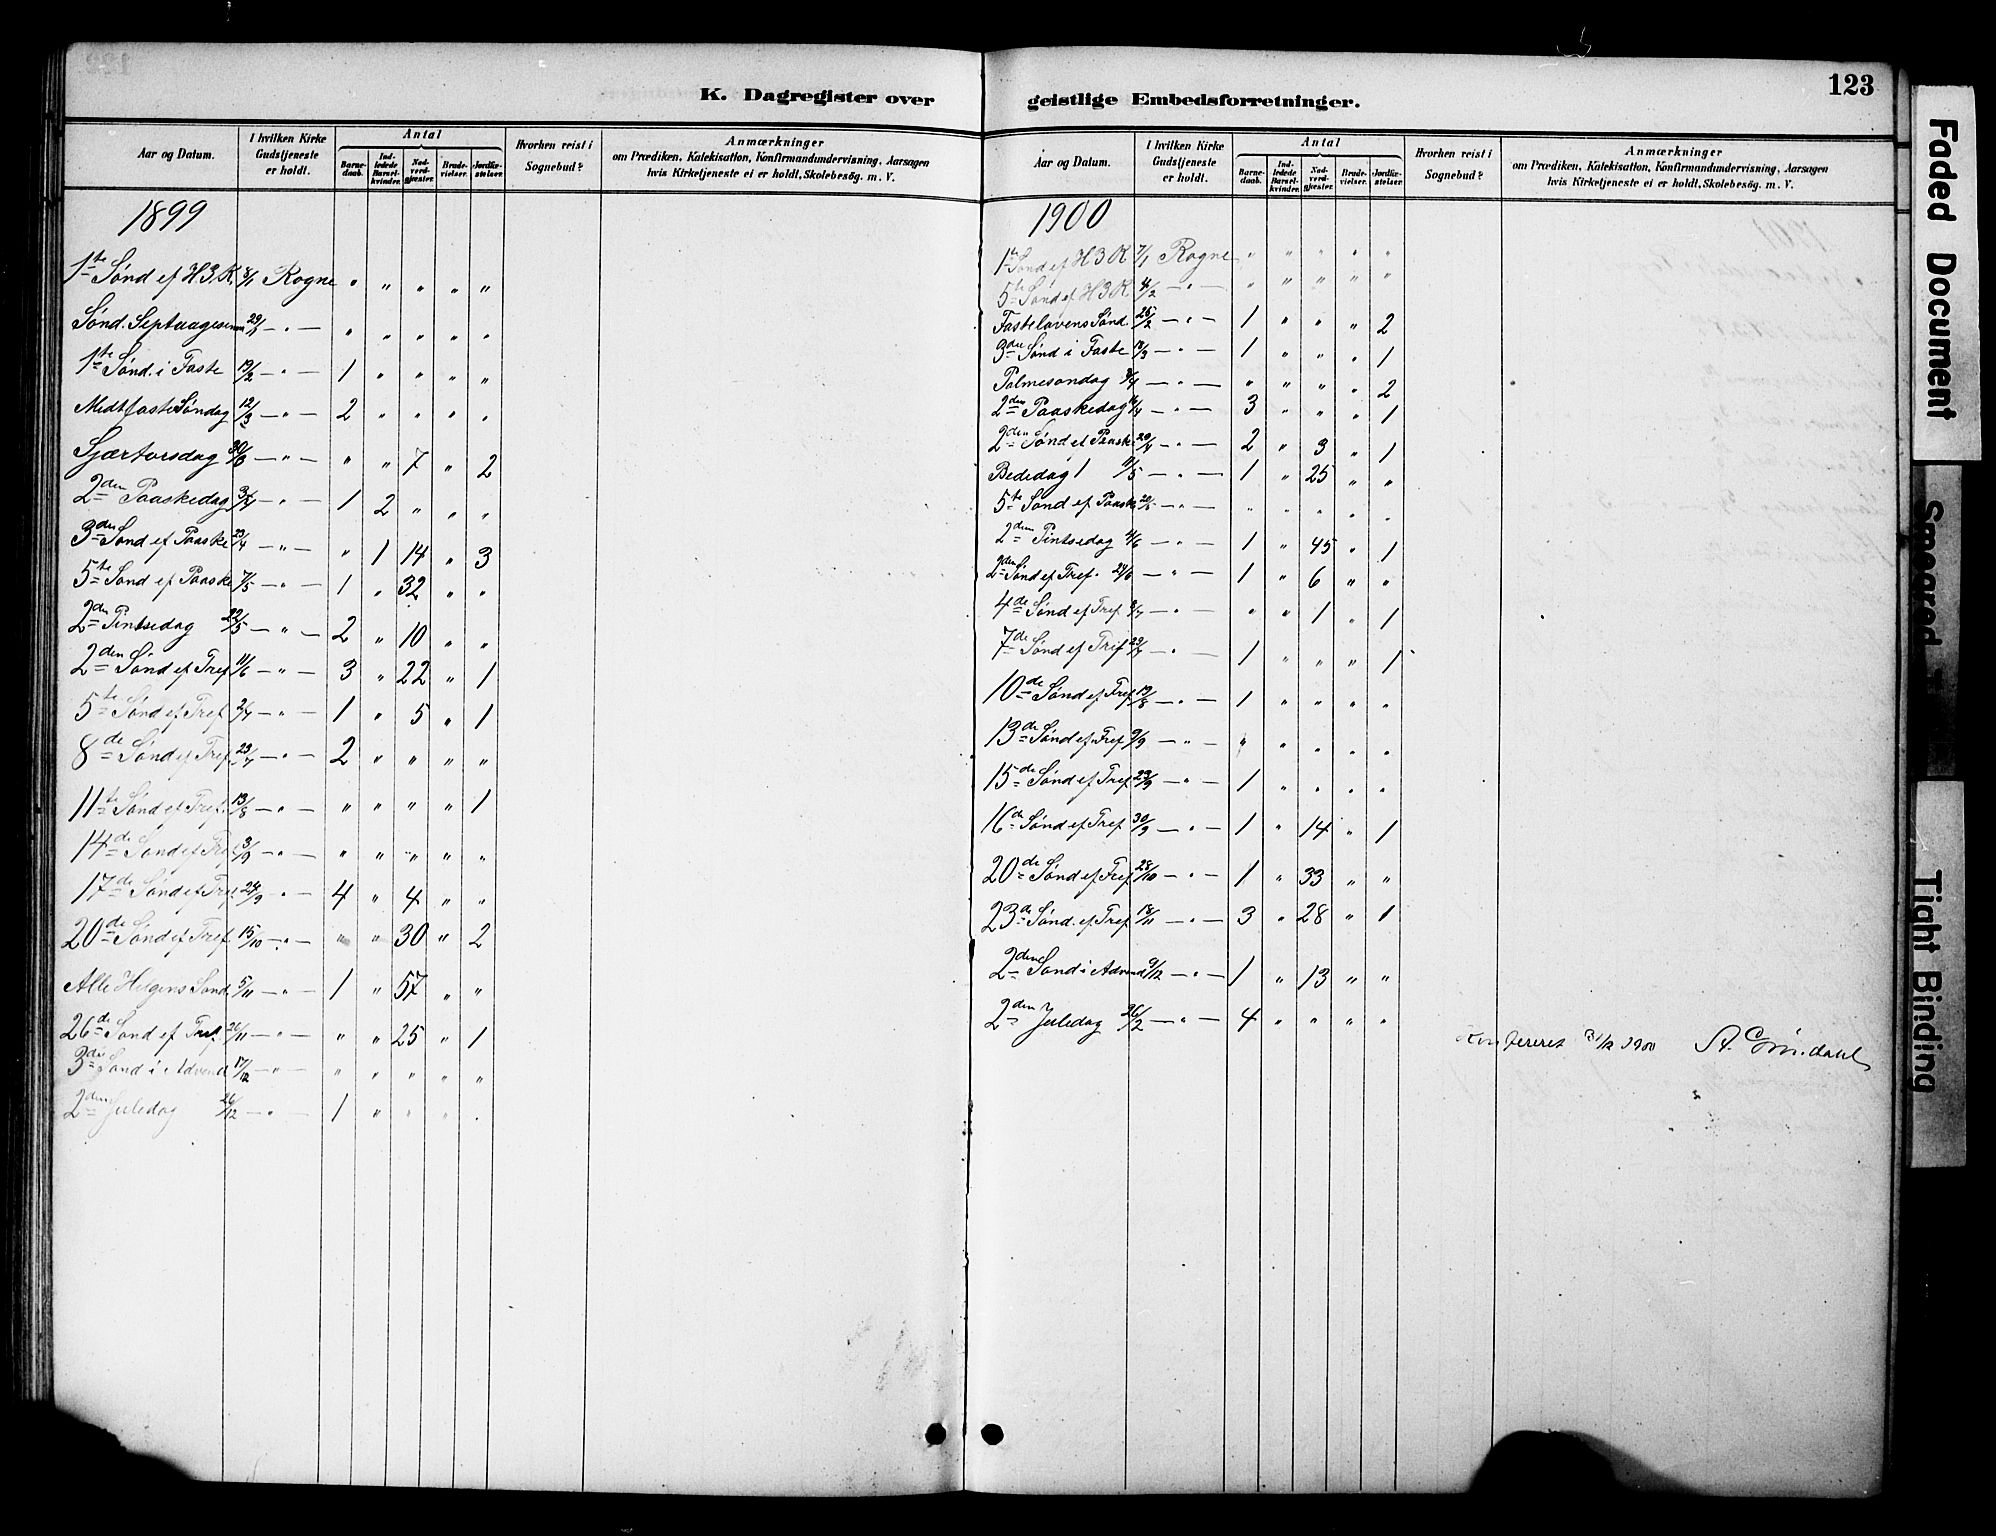 123
K. Dagregister over geistlige Embedsforretninger.
Aar og Datum. | I hvilken Kirke Gudstjeneste er holdt. | Antal | Barnedaab. | Indledede Barselkvinder. | Nadverdgjester. | Brudevielser. | Jordfæstelser. | Hvorhen reist i Sognebud? | Anmærkninger om Prædiken, Katekisation, Konfirmandundervisning, Aarsagen hvis Kirketjeneste ei er holdt, Skolebesög. m. V.
1899
1te Sønd ef H3K. 8/1 Rogne " " " " "
Sønd. Septuagesima 29/1 — " — " " " " "
1te Sønd. i Faste 19/2 — " — 1 " " " "
Midtfaste Søndag 12/3 — " — 2 " " " "
Skjærtorsdag 30/3 — " — " " 7 " 2
2den Paaskedag 3/4 — " — 1 2 " " "
3die Sønd ef Paaske 23/4 — " — " 1 14 " 3
5te Sønd ef Paaske 7/5 — " — 1 " 32 " "
2den Pintsedag 22/5 — " — 2 " 10 " "
2den Sønd ef Tref 11/6 — " — 3 " 22 " 1
5te Sønd ef Tref 2/7 — " — 1 " 5 " 1
8de Sønd ef Tref. 23/7 — " — 2 " " " "
11te Sønd ef Tref. 13/8 — " — " " " " 1
14de Sønd ef Tref 3/9 — " — " " " " "
17de Sønd ef Tref. 24/9 — " — 4 " 4 " "
20de Sønd ef Tref. 15/10 — " — " " 30 " 2
Alle Helgens Sønd. 5/11 — " — 1 " 57 " "
26de Sønd ef Tref. 26/11 — " — " " 25 " 1
3die Sønd i Advend 17/12 — " — " " " " "
2den Juledag 26/12 — " — 1 " " " "
Aar og Datum. | I hvilken Kirke Gudstjeneste er holdt. | Antal | Barnedaab. | Indledede Barselkvinder. | Nadverdgjester. | Brudevielser. | Jordfæstelser. | Hvorhen reist i Sognebud? | Anmærkninger om Prædiken, Katekisation, Konfirmandundervisning, Aarsagen hvis Kirketjeneste ei er holdt, Skolebesög. m. V.
1900
1te Sønd ef H3K 7/1 Rogne " " " " "
5te Sønd ef H3K 4/2 — " — " " " " "
Fastelavens Sønd. 25/2 — " — 1 " " " 2
3die Sønd i Faste 18/3 — " — 1 " " " 1
Palmesøndag 8/4 — " — " " " " 2
2den Paaskedag 16/4 — " — 3 " " " 1
2den Sønd ef Paaske 29/4 — " — 2 " 3 " 1
Bededag 11/5 — " — 1 " 25 " "
5te Sønd ef Paaske 20/5 — " — " " " " "
2den Pintsedag 4/6 — " — 1 " 45 " 1
2den Sønd ef Tref. 24/6 — " — 1 " 6 " "
4de Sønd ef Tref 8/7 — " — " " 1 " 1
7de Sønd ef Tref 29/7 — " — 1 " " " 1
10de Sønd ef Tref 19/8 — " — 1 " " " "
13de Sønd ef Tref 9/9 — " — " " " " "
15de Sønd ef Tref. 23/9 — " — 1 " " " "
16de Sønd ef Tref 30/9 — " — 1 " 14 " 1
20de Sønd ef Tref 28/10 — " — 1 " 33 " "
23de Sønd. ef Tref 18/11 — " — 3 " 28 " 1
2den Sønd i Advend 9/12 — " — 1 " 13 " "
2den Juledag 26/12 — " — 4 " " " "
Konfereret 31/12 1900
Faded Document
Smeared
Tight Binding